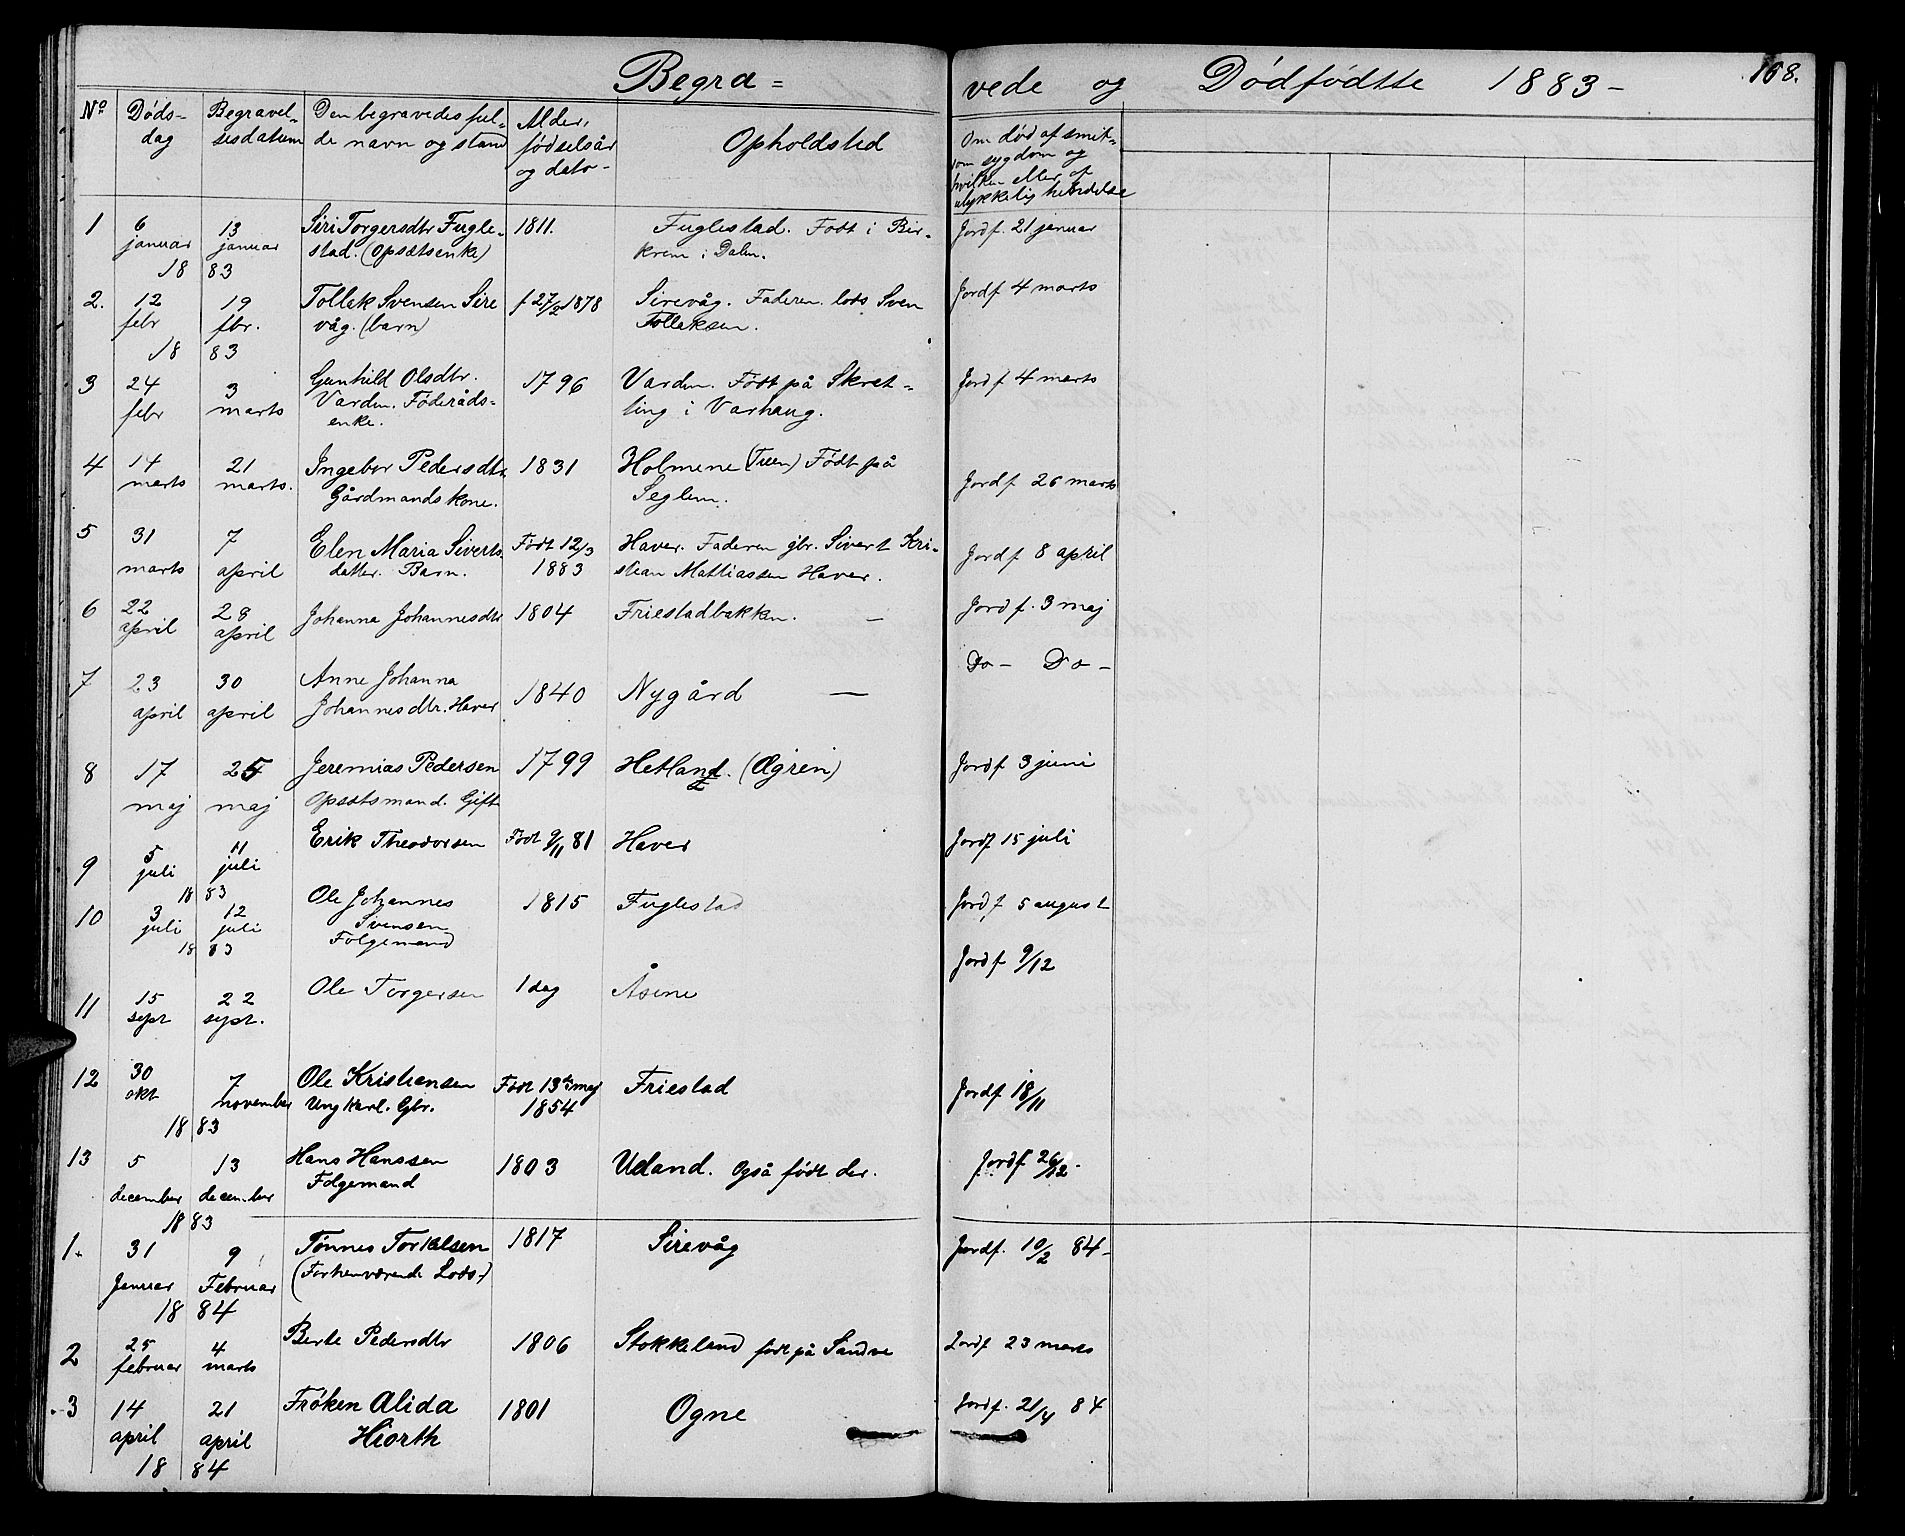 Begra=
vede og Dødfødtte 1883-
168.
No
Døds-
dag
Begravel-
sesdatum
Den begravedes ful-
de navn og stand
Alder,
fødselsår
og dato-
Opholdsted
Om død af smit-
som sygdom og
hvilken eller af
ulykkelig hændelse
1 6 januar 13 januar 1883 Siri Torgersdtr Fugle- 1811. Fuglestad. Født i Bir- Jordf. 21 januar
stad. (Opsætsenke) krem i Dalen.
2. 12 febr 19 fbr. 1883 Tollak Svensen Sire f 27/2 1878 Sirevåg. Faderen. lods Sven Jordf 4 marts
våg. (barn) Tollaksen.
3 24 febr 3 marts Gunhild Olsdtr. 1796 Varden. Født på Skret- Jordf 4 marts
Varden. Føderåds- ling i Varhaug.
enke.
4 14 marts 21 marts. Ingebor Pedersdtr 1831 Holmene (Tuen) Født på Jordf 26 marts
Gårdmandskone. Seglem.
5 31 marts 7 april Elen Maria Siverts Født 12/3 Haver. Faderen gbr. Sivert Kri- Jordf 8 april
datter. Barn. 1883 stian Mattiassen Haver.
6 22 april 28 april Johanna Johannesdtr 1804 Friestadbakken. — Jordf. 3 maj
7 23 april 30 april Anne Johanna 1840 Nygård — Do- Do-
Johannesdtr. Haver
8 17 maj 25 maj Jeremias Pedersen 1799 Hetland. (Øgrein) Jordf 3 juni
Opsætsmand. Gift
9 5 juli 11 juli 1883 Erik Theodorsen Født 9/11 81 Haver Jordf 15 juli
10 3 juli 12 juli 1883 Ole Johannes 1815 Fuglestad Jordf 5 august
Svensen
Folgemand
11 15 sept 22 sept. Ole Torgersen 1 dag Åsene Jordf 9/12
12 30 okt 7 november 1883 Ole Kristiansen Født 13de maj Friestad Jordf 18/11
Ungkarl. Gbr. 1854
13 5 december 13 december 1883 Hans Hanssen 1803 Udland. Også født der. Jordf 26/12-
Folgemand
1. 31 Januar 9 Februar 1884 Tønnes Torkelsen 1817 Sirevåg Jordf. 10/2 84-
(Forhenværende Lods-)
2 25 februar 4 marts Berte Pedersdtr 1806 Stokkeland født på Sandve Jordf 23 marts
3 14 april 21 april 1884 Frøken Alida 1801 Ogne Jordf. 21/4 84
Hiorth